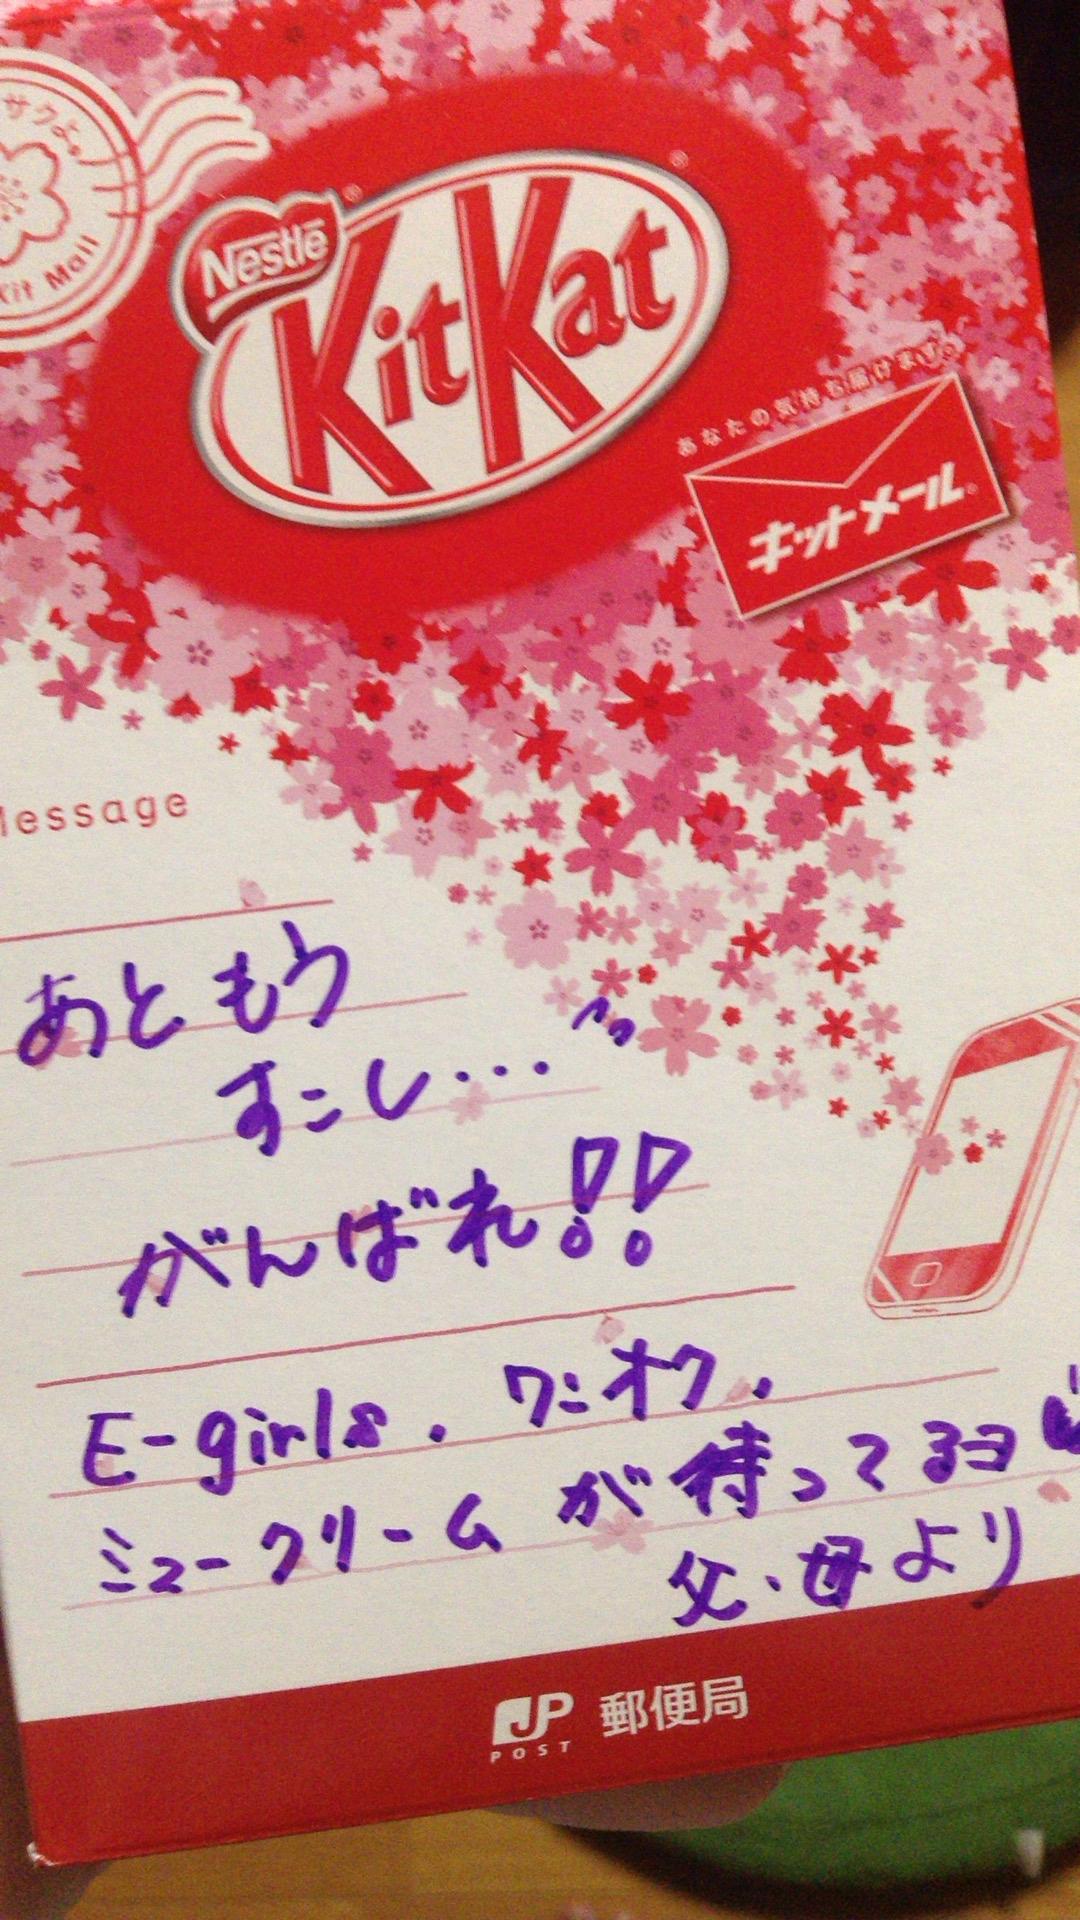 サクよ。
Kit Mail
Nestlé
KitKat
あなたの気持ち届けます。
キットメール
Message
あともう
すこし...
がんばれ!!
E-girls. ワニオク.
ミュークリーム が待ってるヨ
父・母より
JP 郵便局
POST